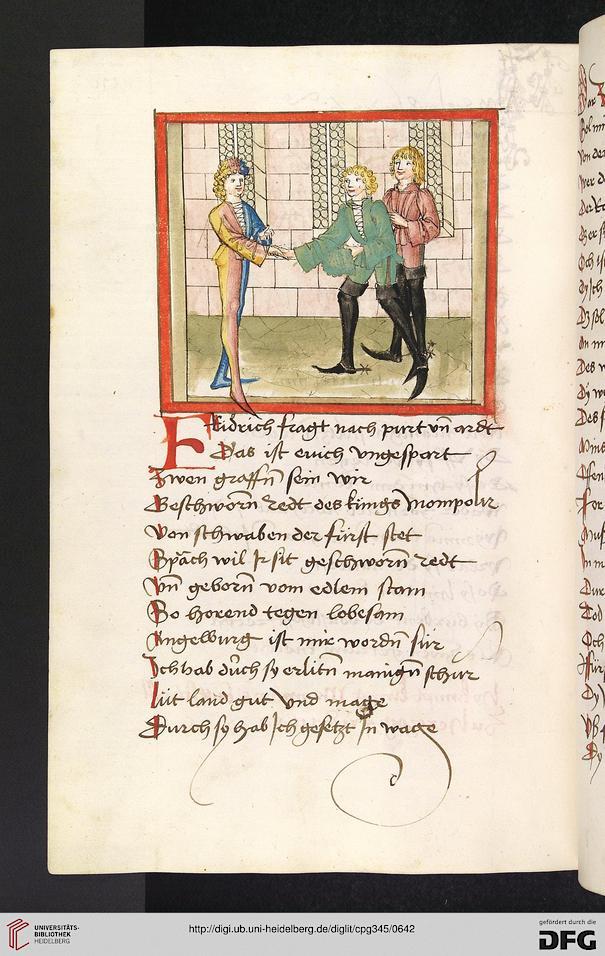 Fridrich fragt nach purt vn̄ ardt
Das ist euch vngespart
Zwen graffn̄ sein wir
Beschworn̄ redt des kings Mompolir
Von schwaben der fürst stet
Sprach wil Ir sit geschworn̄ redt
Vn̄ geborn̄ vom edlem stam
So horend tegen lobesam
Angelburg ist mir wordn̄ für
Ich hab durch sy erlitn̄ manign̄ schur
lüt land gut Vnd mage
Durch sy hab Ich gesetzt In wage
UNIVERSITÄTS-
BIBLIOTHEK
HEIDELBERG
http://digi.ub.uni-heidelberg.de/diglit/cpg345/0642
gefördert durch die
DFG